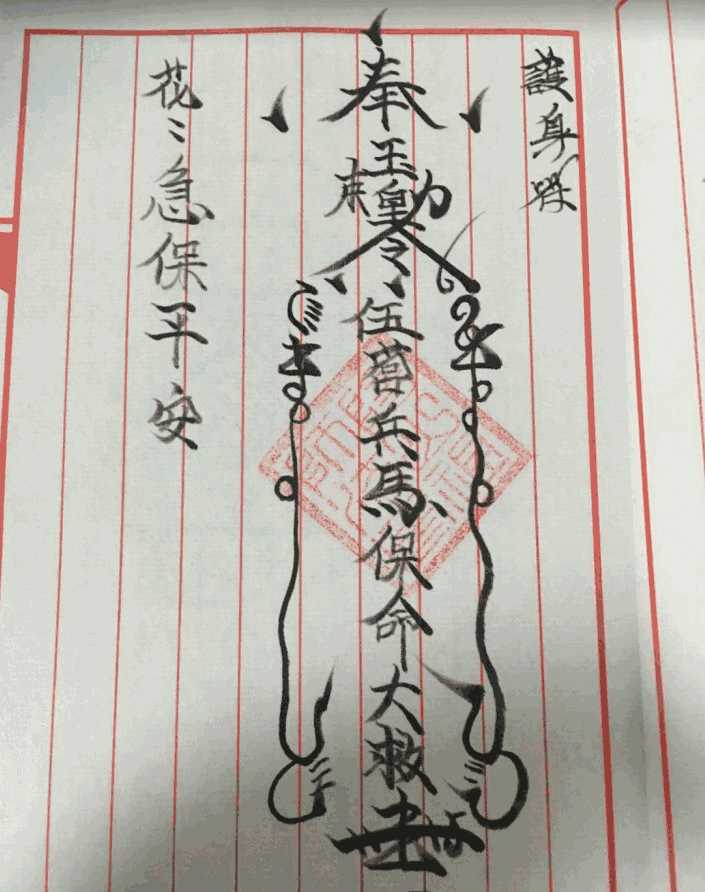 護身
奉玉皇勅令伍營兵馬保命大救
花〻急保平安